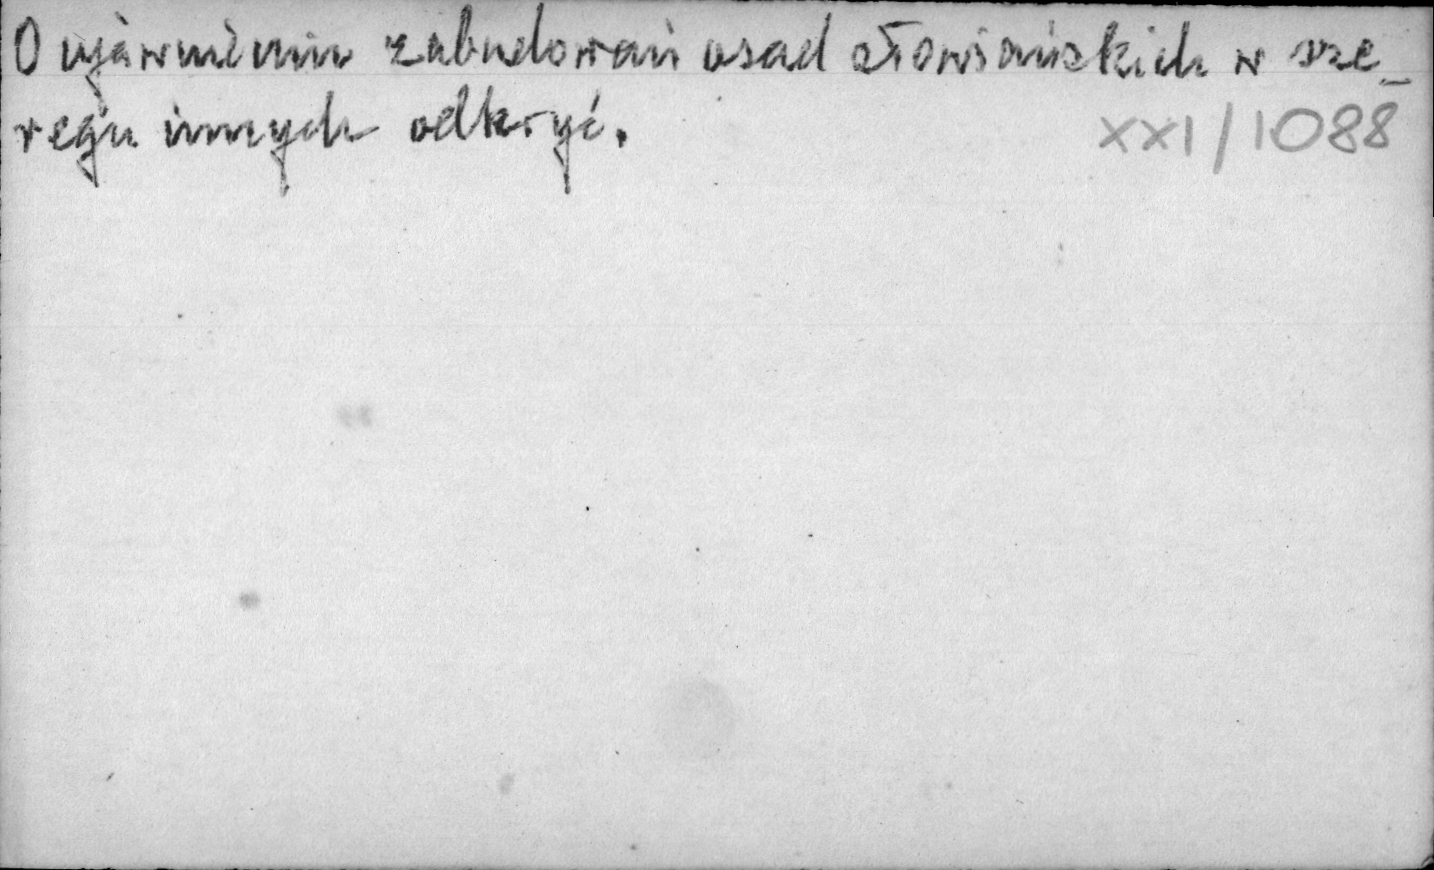 O ujawnieniu zabudowań osad słowiańskich w sze_
regu innych odkryć.
XXI/1088